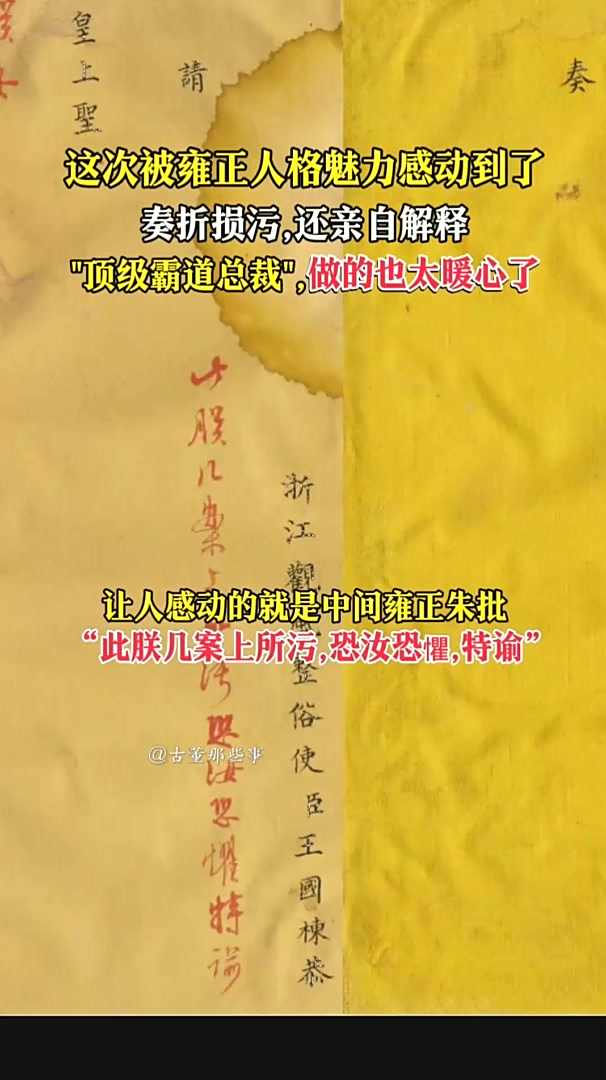 奏
浙江觀風整俗使臣王國棟恭
請
皇上聖
此朕几案上所污恐汝恐懼特諭
这次被雍正人格魅力感动到了
奏折损污,还亲自解释
"顶级霸道总裁",做的也太暖心了
让人感动的就是中间雍正朱批
“此朕几案上所污,恐汝恐懼,特谕”
@古董那些事